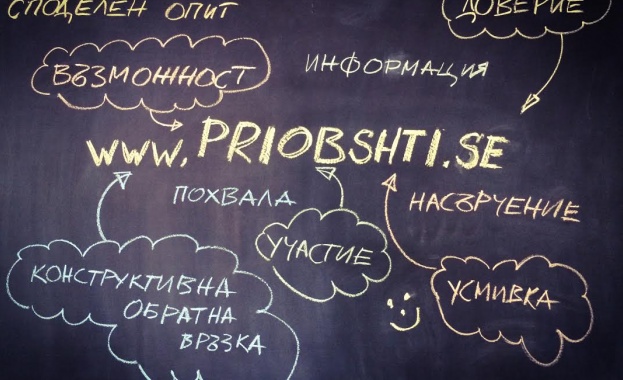 СПОДЕЛЕН ОПИТ
ДОВЕРИЕ
ВЪЗМОЖНОСТ
ИНФОРМАЦИЯ
www.PRIOBSHTI.SE
ПОХВАЛА
НАСЪРЧЕНИЕ
УЧАСТИЕ
КОНСТРУКТИВНА
ОБРАТНА
ВРЪЗКА
УСМИВКА